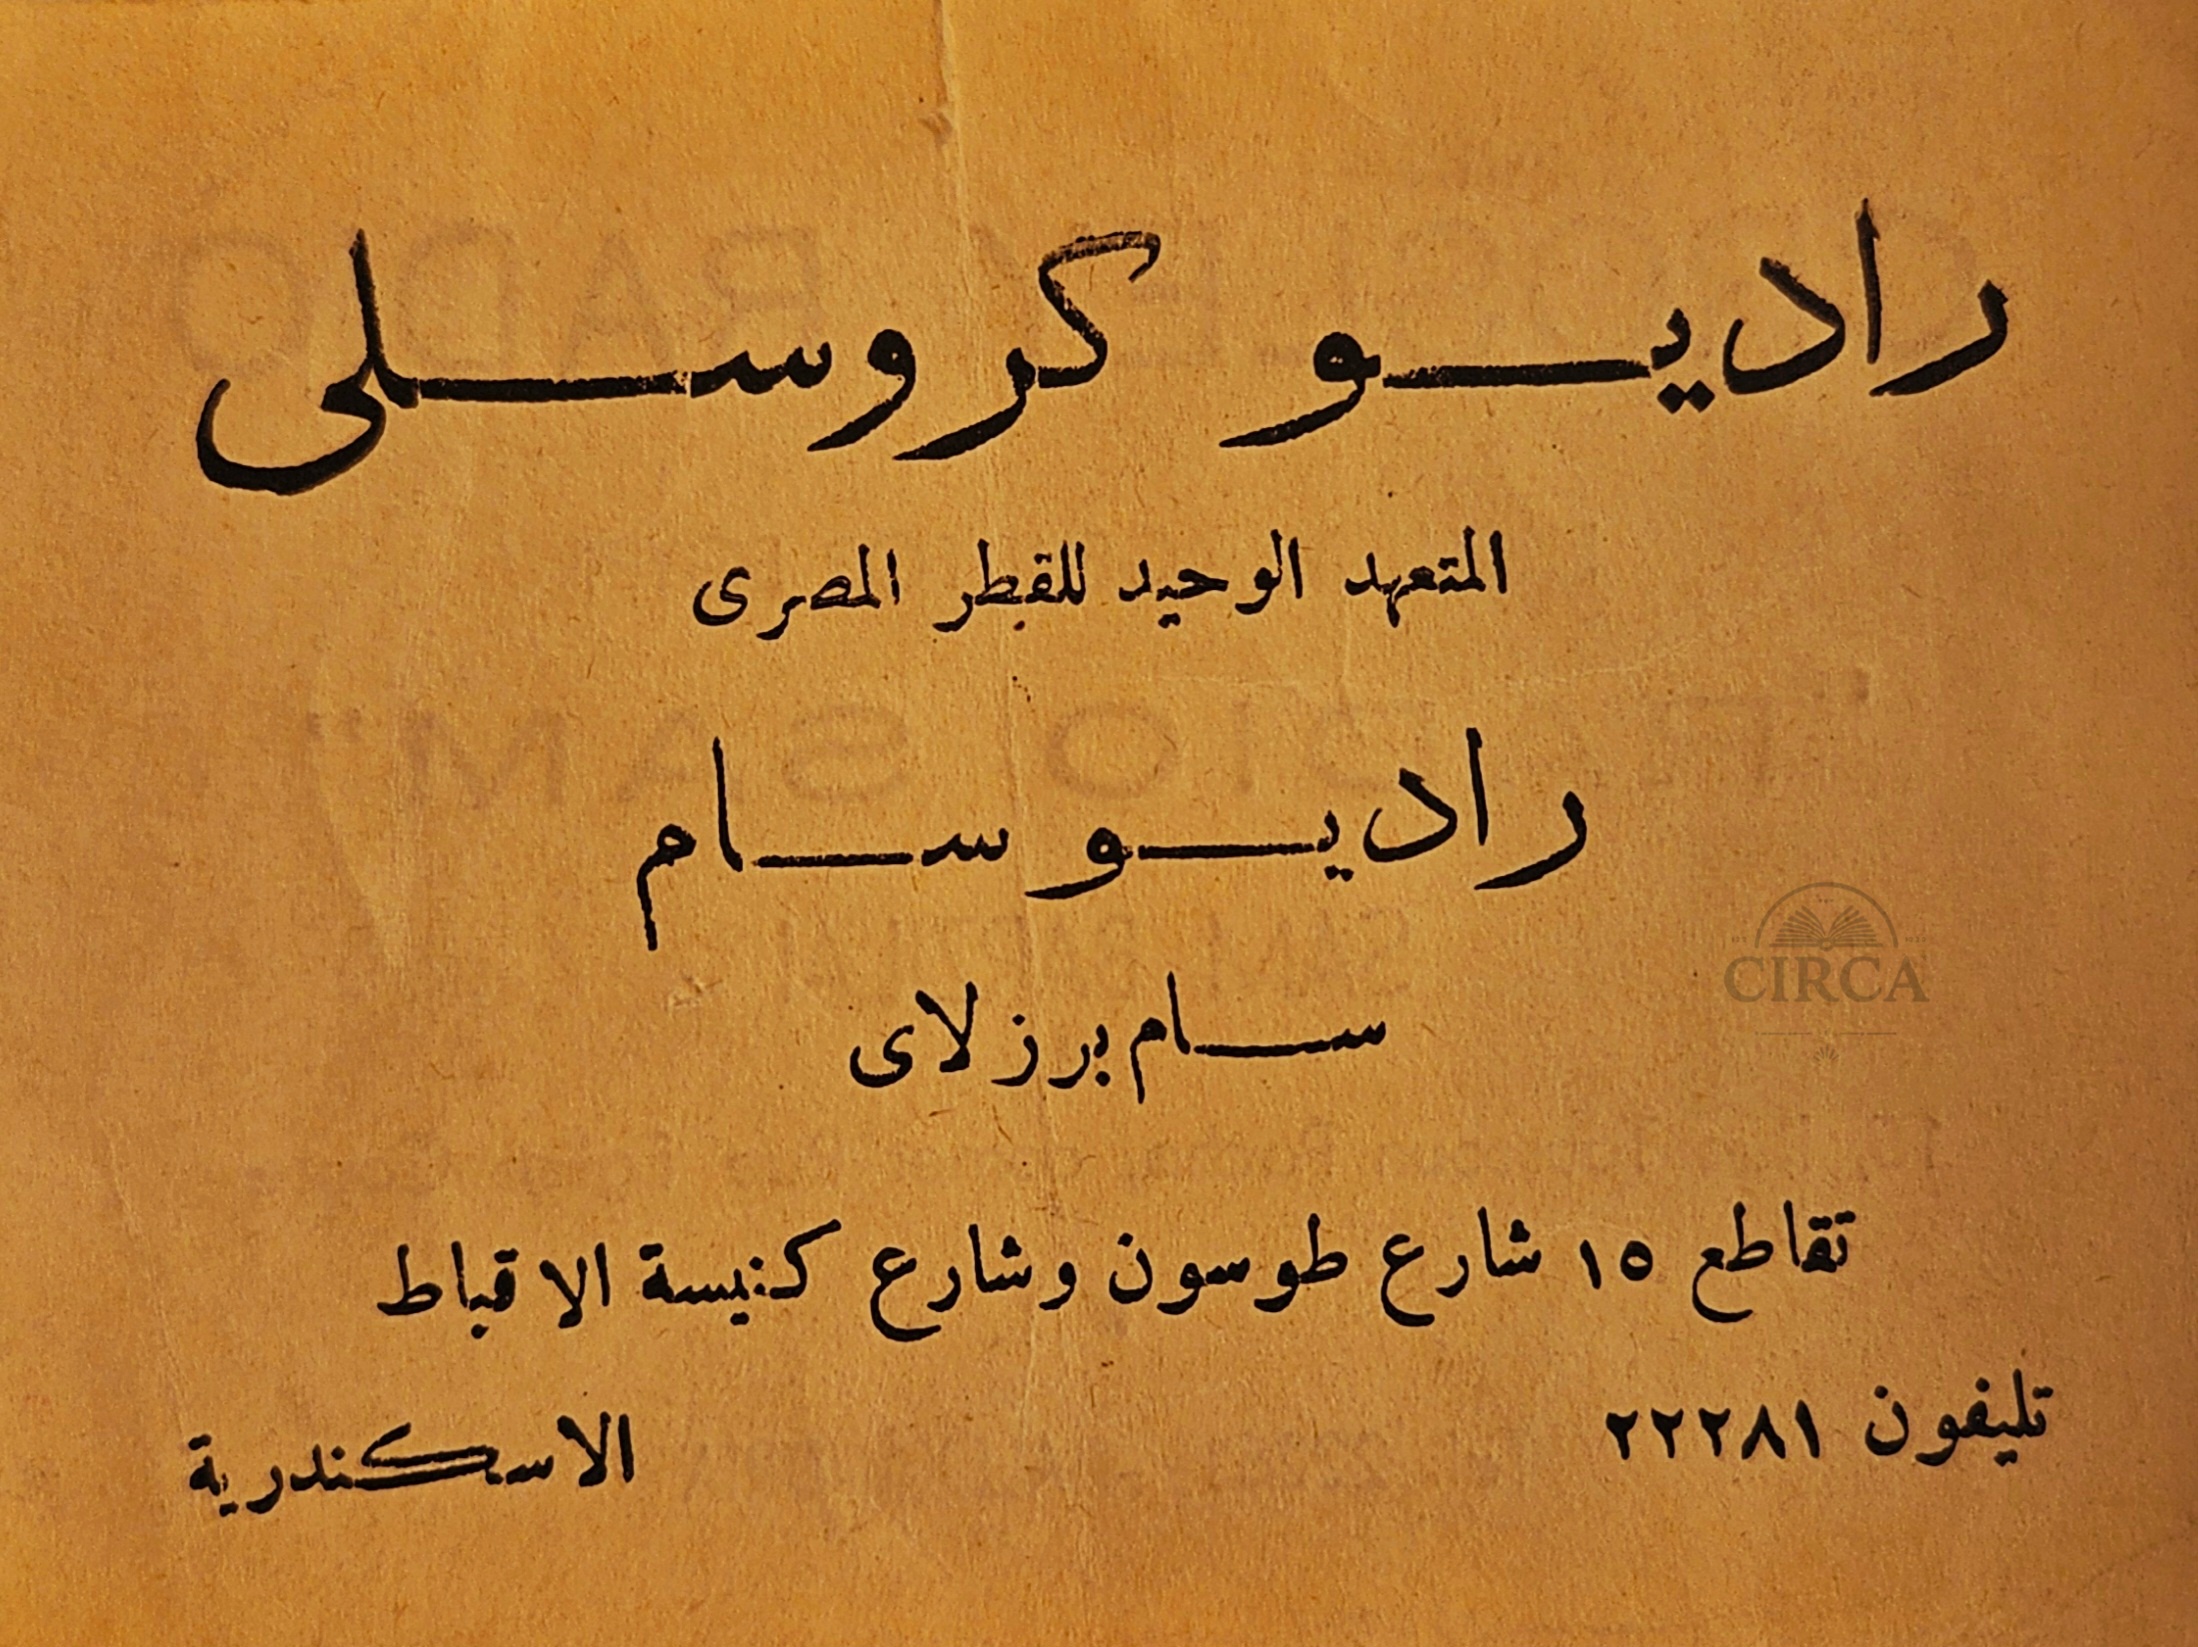 راديو كروسلى
المتعهد الوحيد للقطر المصرى
راديو سام
سام برزلاى
CIRCA
تقاطع ١٥ شارع طوسون وشارع كنيسة الاقباط
تليفون ٢٢٢٨١ الاسكندرية